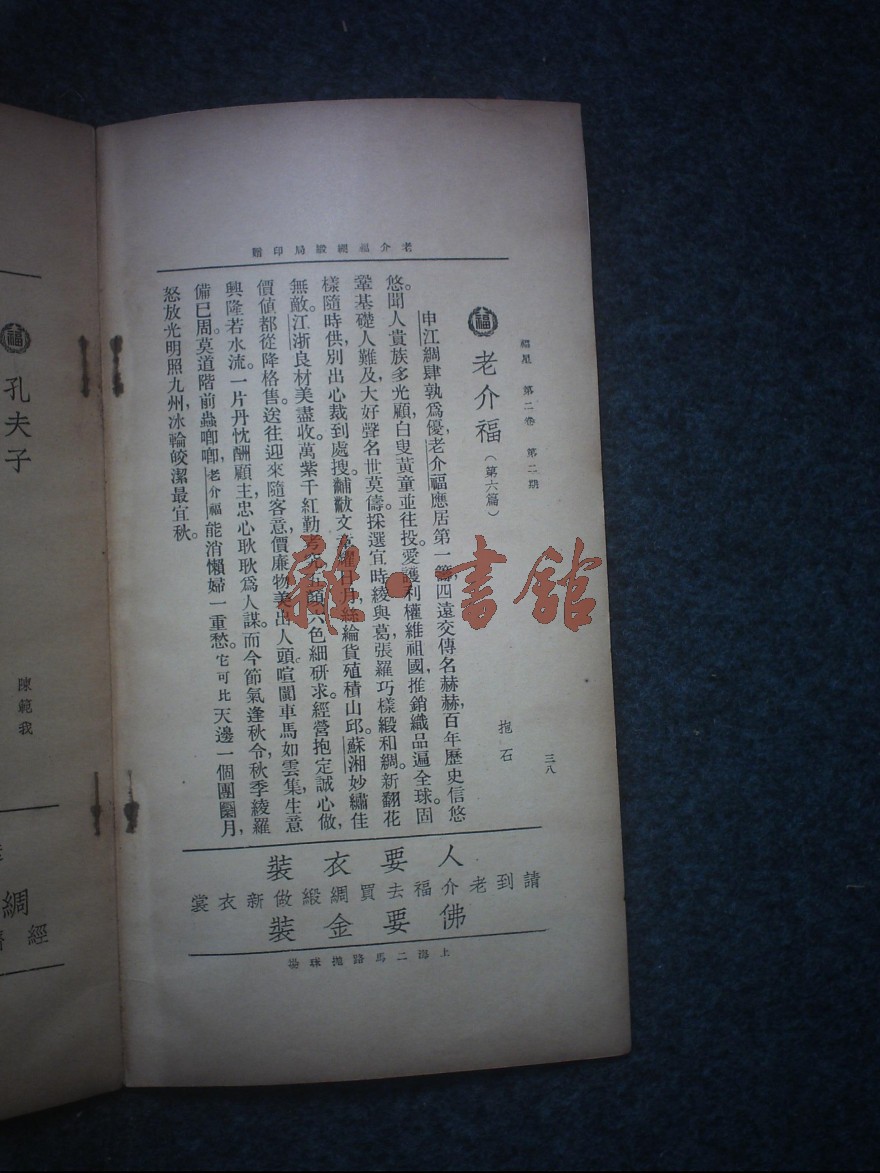 老介福綢緞局印贈
福星 第二卷 第二期 三八
福 老介福(第六篇) 抱石
申江綢肆孰爲優,老介福應居第一籌,四遠交傳名赫赫,百年歷史信悠
悠。聞人貴族多光顧,白叟黃童並往投。愛護利權維祖國,推銷織品遍全球。固
鞏基礎人難及,大好聲名世莫儔。採選宜時綾與葛,張羅巧樣緞和綢。新翻花
樣隨時供,別出心裁到處搜。黼黻文章耀日月,絲綸貨殖積山邱。蘇湘妙繡佳
無敵。江浙良材美盡收。萬紫千紅勤考究,五顏六色細研求。經營抱定誠心做,
價値都從降格售。送往迎來隨客意,價廉物美出人頭。喧闐車馬如雲集,生意
興隆若水流。一片丹忱酬顧主,忠心耿耿爲人謀。而今節氣逢秋令,秋季綾羅
備已周。莫道階前蟲唧唧,老介福能消懶婦一重愁。它可比天邊一個團圞月,
怒放光明照九州,冰輪皎潔最宜秋。
人要衣裝
請到老介福去買綢緞做新衣裳
佛要金裝
上海二馬路拋球場
福 孔夫子 陳範我
綢
經
雜·書館